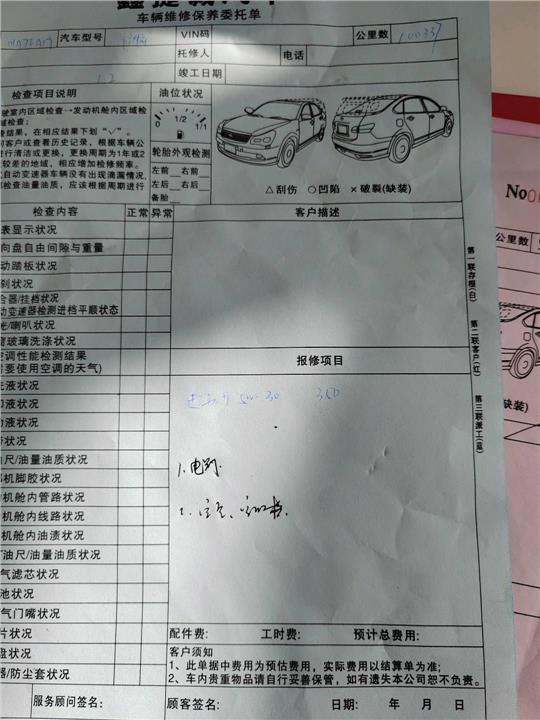 车辆维修保养委托单
汽车型号 VIN码 公里数 10033
托修人 电话
竣工日期
检查项目说明 油位状况
驶室内区域检查→发动机舱内区域检
域检查
查结果，在相应结果下划“√”。
司客户或查看历史记录，根据车辆公
进行清洁或更换，更换周期为1年或2
较差的地域，相应增加检修频率。
自动变速器车辆没有出现滴漏情况，
检查油量油质，应该根据周期进行
0 1/2 1/1
轮胎外观检测
左前 右前
左后 右后
备胎
△刮伤 ○凹陷 ×破裂(缺装)
检查内容 正常 异常 客户描述
表显示状况
向盘自由间隙与重量
动踏板状况
刹状况
合器/挂档状况
动变速器检测进档平顺状态
光/喇叭状况
窗玻璃洗涤状况
空调性能检测结果
需要使用空调的天气)
报修项目
先液状况
却液状况
力液状况
带状况
油尺/油量油质状况
机脚胶状况
机舱内管路状况
机舱内线路状况
机舱内油渍状况
油尺/油量油质状况
气滤芯状况
池状况
气门嘴状况
片状况
盘状况
器/防尘套状况
5W-30 350
1.电瓶
配件费： 工时费： 预计总费用：
客户须知
1、此单据中费用为预估费用，实际费用以结算单为准；
2、车内贵重物品请自行妥善保管，如有遗失本公司恕不负责。
服务顾问签名： 顾客签名： 日期： 年 月 日
第一联存根(白)
第二联客户(红)
第三联派工(蓝)
No
公里数
缺装)